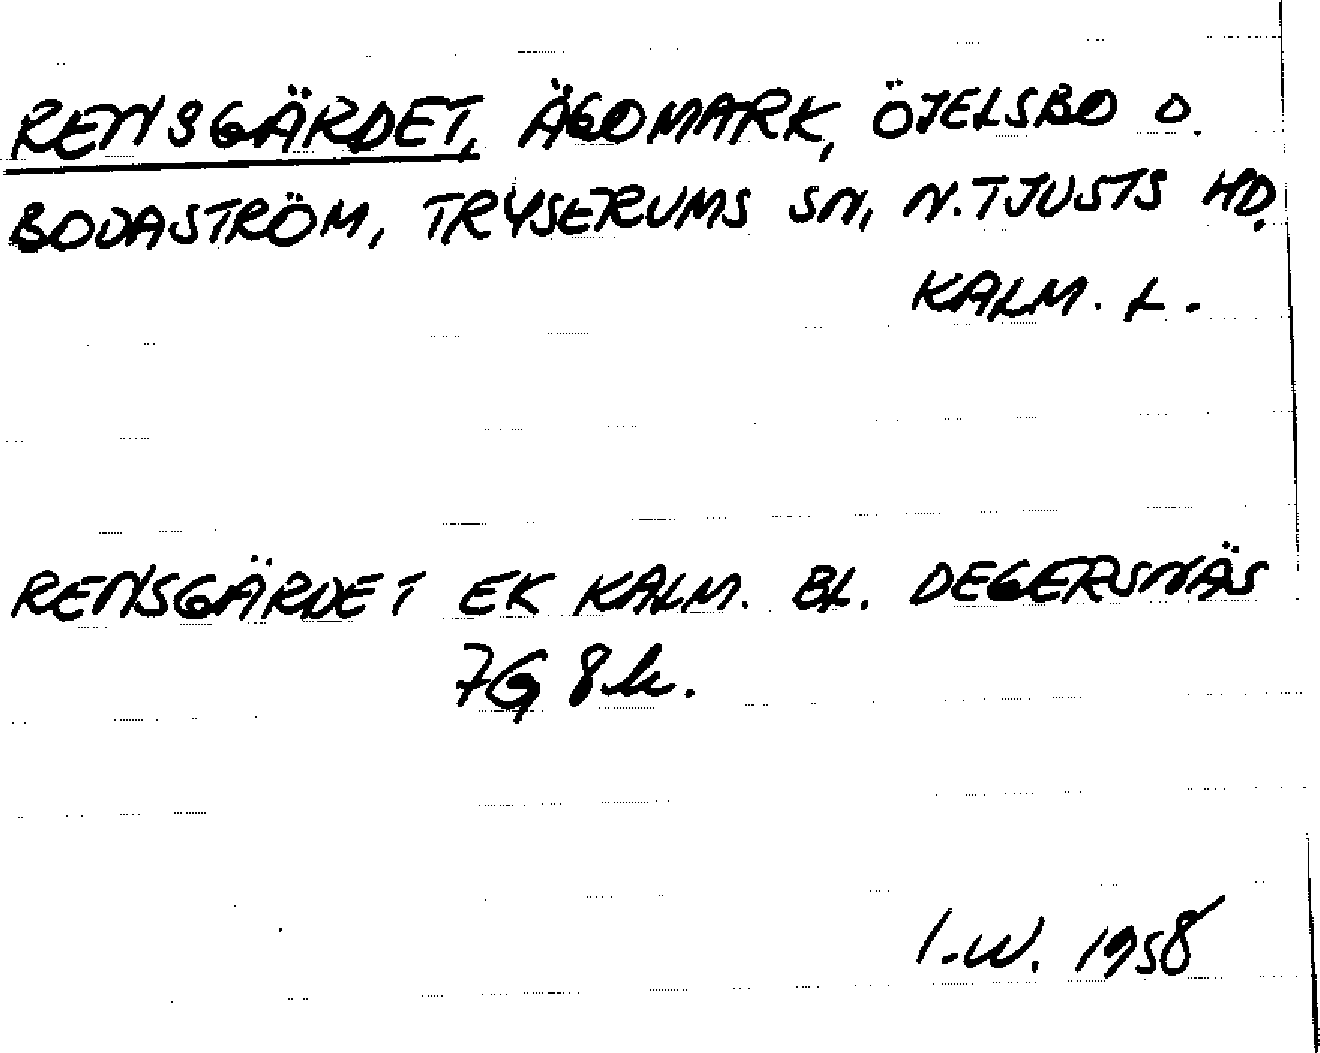 RENSGÄRDET, ÄGOMARK, ÖJELSBO O.
BODASTRÖM, TRYSERUMS SN, N. TJUSTS HD.
KALM. L.
RENSGÄRDET EK KALM. BL. DEGERSNÄS
7G 8h.
I.W. 1958